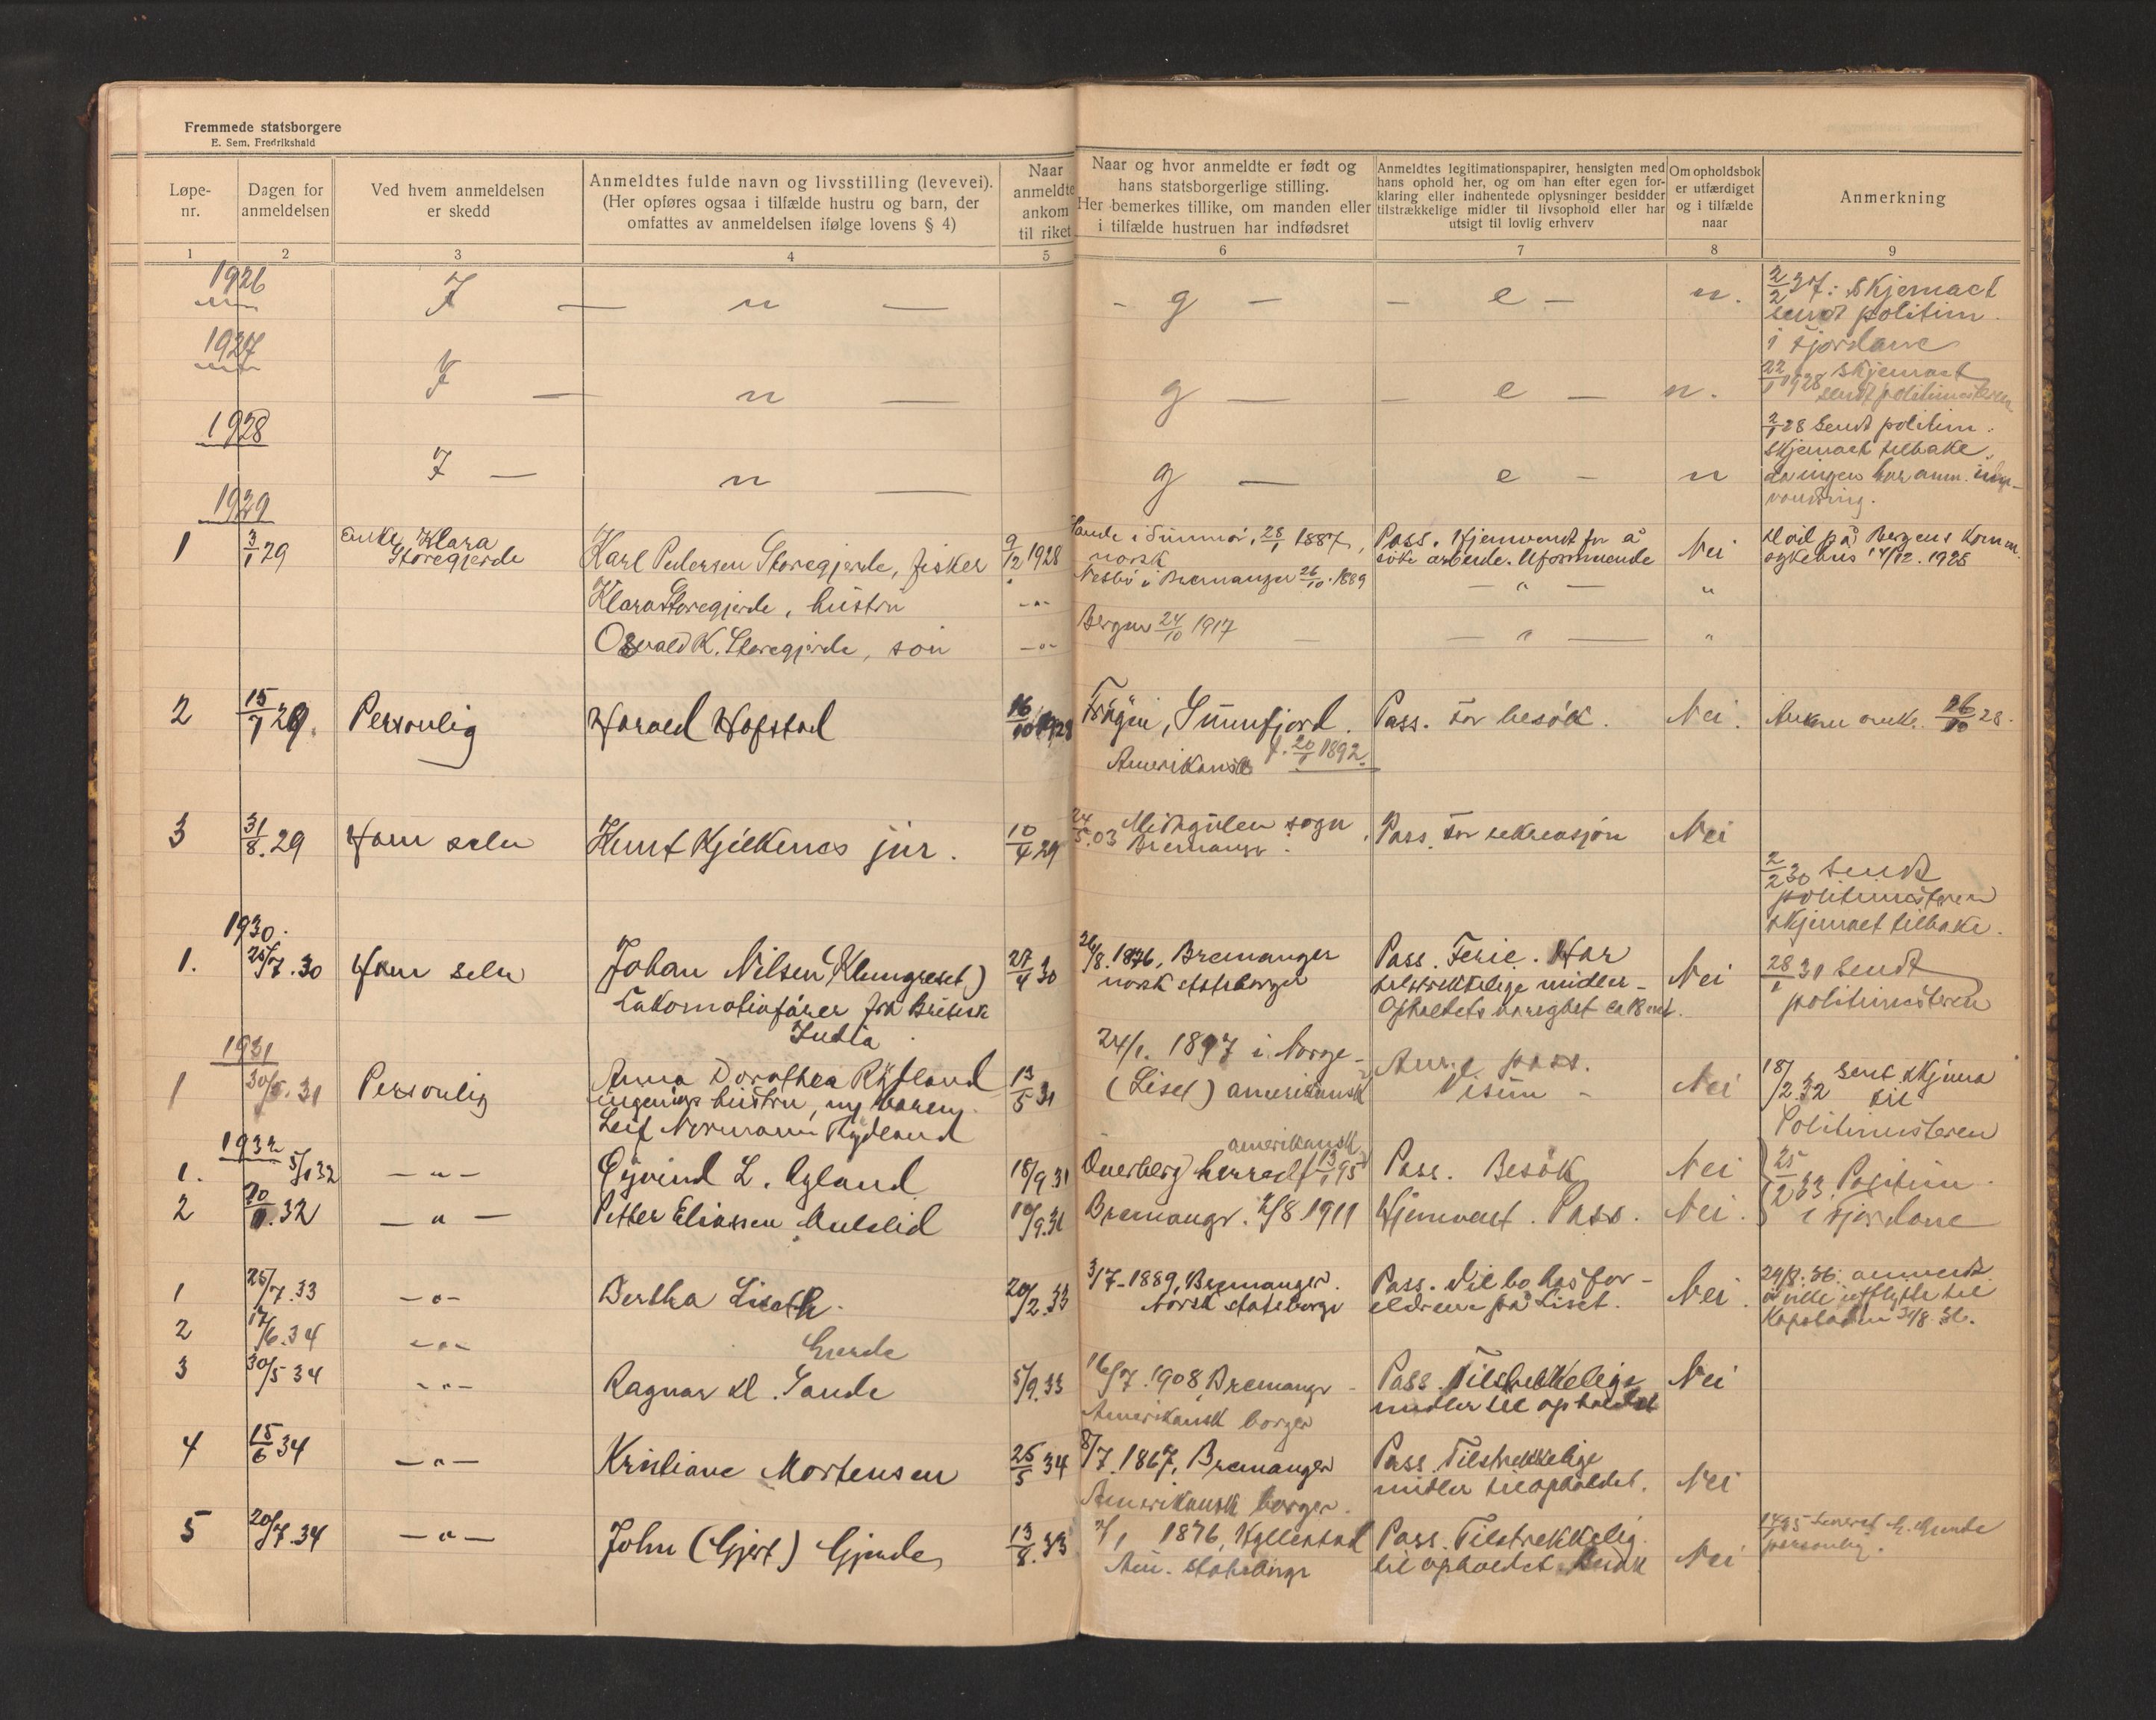 Fremmede statsborgere
E. Sem, Fredrikshald
Løpe-nr. | Dagen for anmeldelsen | Ved hvem anmeldelsen er skedd | Anmeldtes fulde navn og livsstilling (levevei). (Her opføres ogsaa i tilfælde hustru og barn, der omfattes av anmeldelsen ifølge lovens § 4) | Naar anmeldte ankom til riket | Naar og hvor anmeldte er født og hans statsborgerlige stilling. Her bemerkes tillike, om manden eller i tilfælde hustruen har indfødsret | Anmeldtes legitimationspapirer, hensigten med hans ophold her, og om han efter egen forklaring eller indhentede oplysninger besidder tilstrækkelige midler til livsophold eller har utsigt til lovlig erhverv | Om opholdsbok er utfærdiget og i tilfælde naar | Anmerkning
1 2 3 4 5 6 7 8 9
1926
I — n — - g — - e - n. 2/2 37: Skjemaet
sendt politim.
i Fjordane
1927
I — n — g — - e — n. 22/1 1928 skjemaet
sendt politimesteren
1928
I — n — g — e - n 2/1 28 Sendt politim.
skjemaet tilbake,
da ingen har anm.
1929
1 3/1 29 Enke Klara Storegjerde Karl Pedersen Storegjerde, fisker 9/12 1928 Sande i Sunnmør, 28/1 1887, norsk Pass. Hjemvendt for å søke arbeide. Uformuende Nei Død på Bergens Komm. sykehus 14/12. 1928
Klara Storegjerde, hustru -"- Nesbø i Bremanger 26/10. 1889 — " — "
Osvald K. Storegjerde, søn -"- Bergen 24/10 1917 — " — "
2 15/7 29. Personlig Harald Hofstad 16/10 1928 Sunnfjord. Amerikansk f. 20/1 1892. Pass. For besøk. Nei. 16/10 28.
3 31/8. 29 Ham selv Knut Kjelkenes jnr. 10/4 29 24/5. 03 Midtgulen sogn, Bremanger. Pass. For rekreasjon Nei
2/2 30 Sendt
politimesteren
skjemaet tilbake.
1930.
1. 25/7. 30 Ham selv Johan Nilsen (Klungreset) 27/4 30 26/8. 1876, Bremanger norsk statsborger Pass. Ferie. Har tilstrekkelige midler - Opholdets varighet ca 18 mnt. Nei 28/1 31 Sendt politimesteren
Lokomotivfører fra Britisk
India.
1931
1 30/5. 31 Personlig Anna Dorothea Rydland 13/5 31 24/1. 1897 i Norge - (Liset) amerikansk Amr. pass. Visum - Nei 18/2. 32 Sent skjema til Politimesteren
ingeniørs hustru,
Leif Normann Rydland
1932
1. 5/1 32 — " — Øyvind L. Øyland 18/9 31 herred f 13/1 95 amerikansk Pass. Besøk Nei } 25/2 33 Politim.
2 20/1. 32 — " — Petter Eliassen Aulelid 10/9. 31 Bremanger. 2/8 1911 Hjemvendt. Pass. Nei. } i Fjordane
1 25/7. 33 — " — Bertha Liseth. 20/2. 33 3/7 - 1889, Bremanger. Norsk statsborger Pass. Vil bo hos foreldrene på Liset. Nei. 24/8. 36. anmeldt å ville utflytte til Kapstaden 31/8. 36.
2 17/6. 34 — " —
3 30/5 34 — " — Ragnar Kl. Sande Grende 5/9. 33 16/7. 1908, Bremanger - Amerikansk borger Pass. Tilstrekkelige midler til opholdet Nei
4 15/6 34 — " — Kristiane Mortensen 26/5 34 8/7. 1867, Bremanger Amerikansk borger. Pass. Tilstrekkelige midler til opholdet. Nei
5 20/7. 34 — " — John (Gjert) Gjerde, 13/8. 33 2/1 1876, Hyllestad Am. statsborger Pass. Tilstrekkelig til opholdet. Besøk Nei personlig.